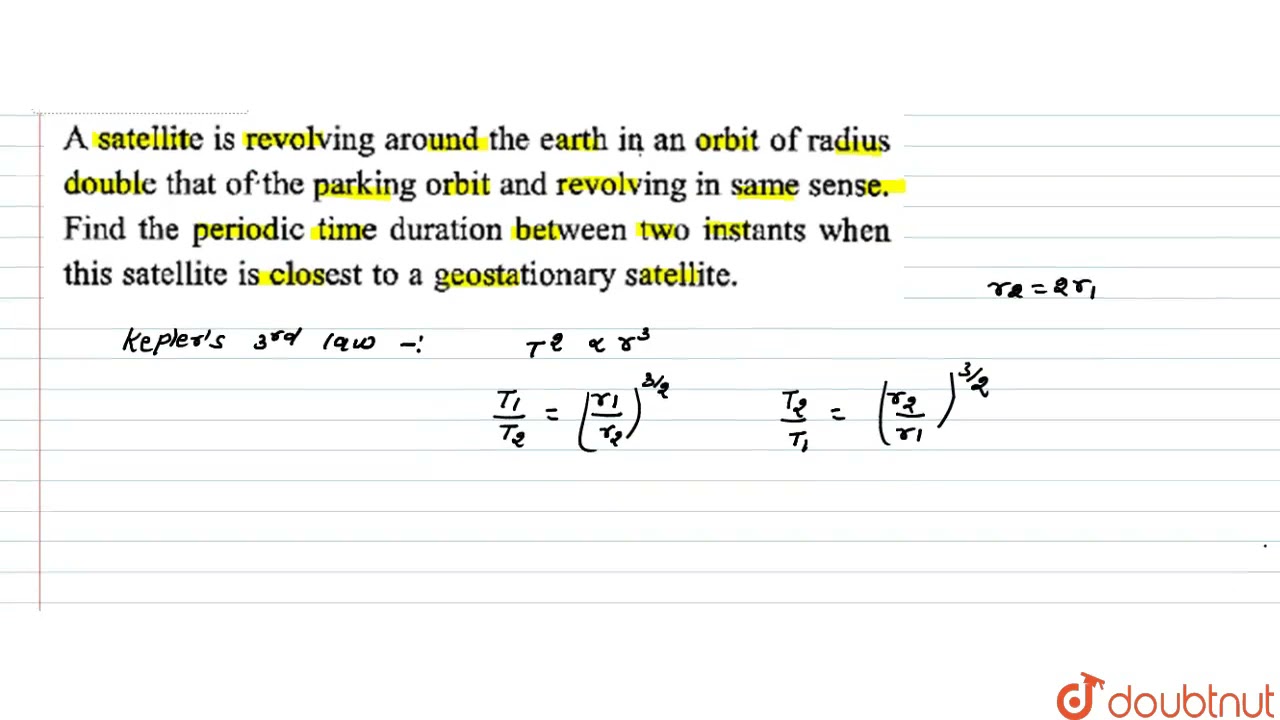 A satellite is revolving around the earth in an orbit of radius
double that of the parking orbit and revolving in same sense.
Find the periodic time duration between two instants when
this satellite is closest to a geostationary satellite.
r2 = 2r1
Kepler's 3rd law -: T² ∝ r³
T1/T2 = (r1/r2)^3/2 T2/T1 = (r2/r1)^3/2
doubtnut